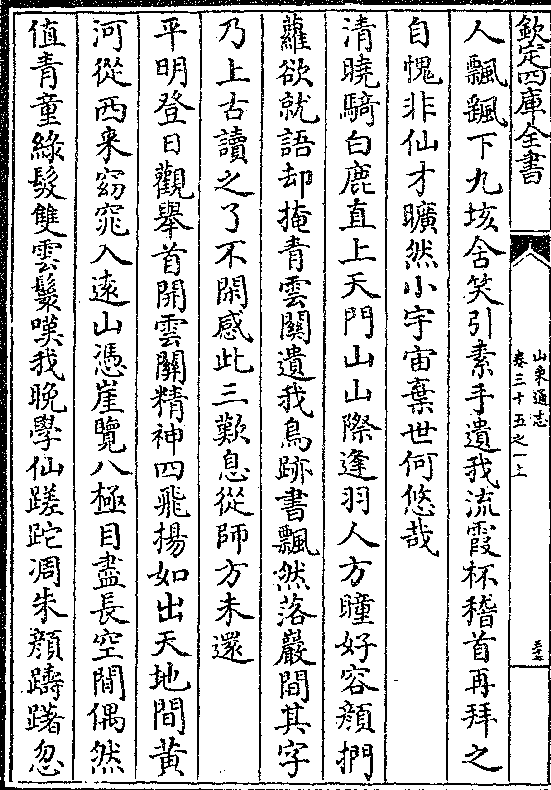 欽定四庫全書
山東通志
卷三十五之一上
人飄飖下九垓含笑引素手遺我流霞杯稽首再拜之
自愧非仙才曠然小宇宙棄世何悠哉
清曉騎白鹿直上天門山山際逢羽人方瞳好容顏捫
蘿欲就語却掩青雲關遺我鳥跡書飄然落巖間其字
乃上古讀之了不閑感此三歎息從師方未還
平明登日觀舉首開雲關精神四飛揚如出天地間黄
河從西来窈窕入遠山憑崖覽八極目盡長空閒偶然
值青童綠髮雙雲鬟嘆我晚學仙蹉跎凋朱顏躊躇忽